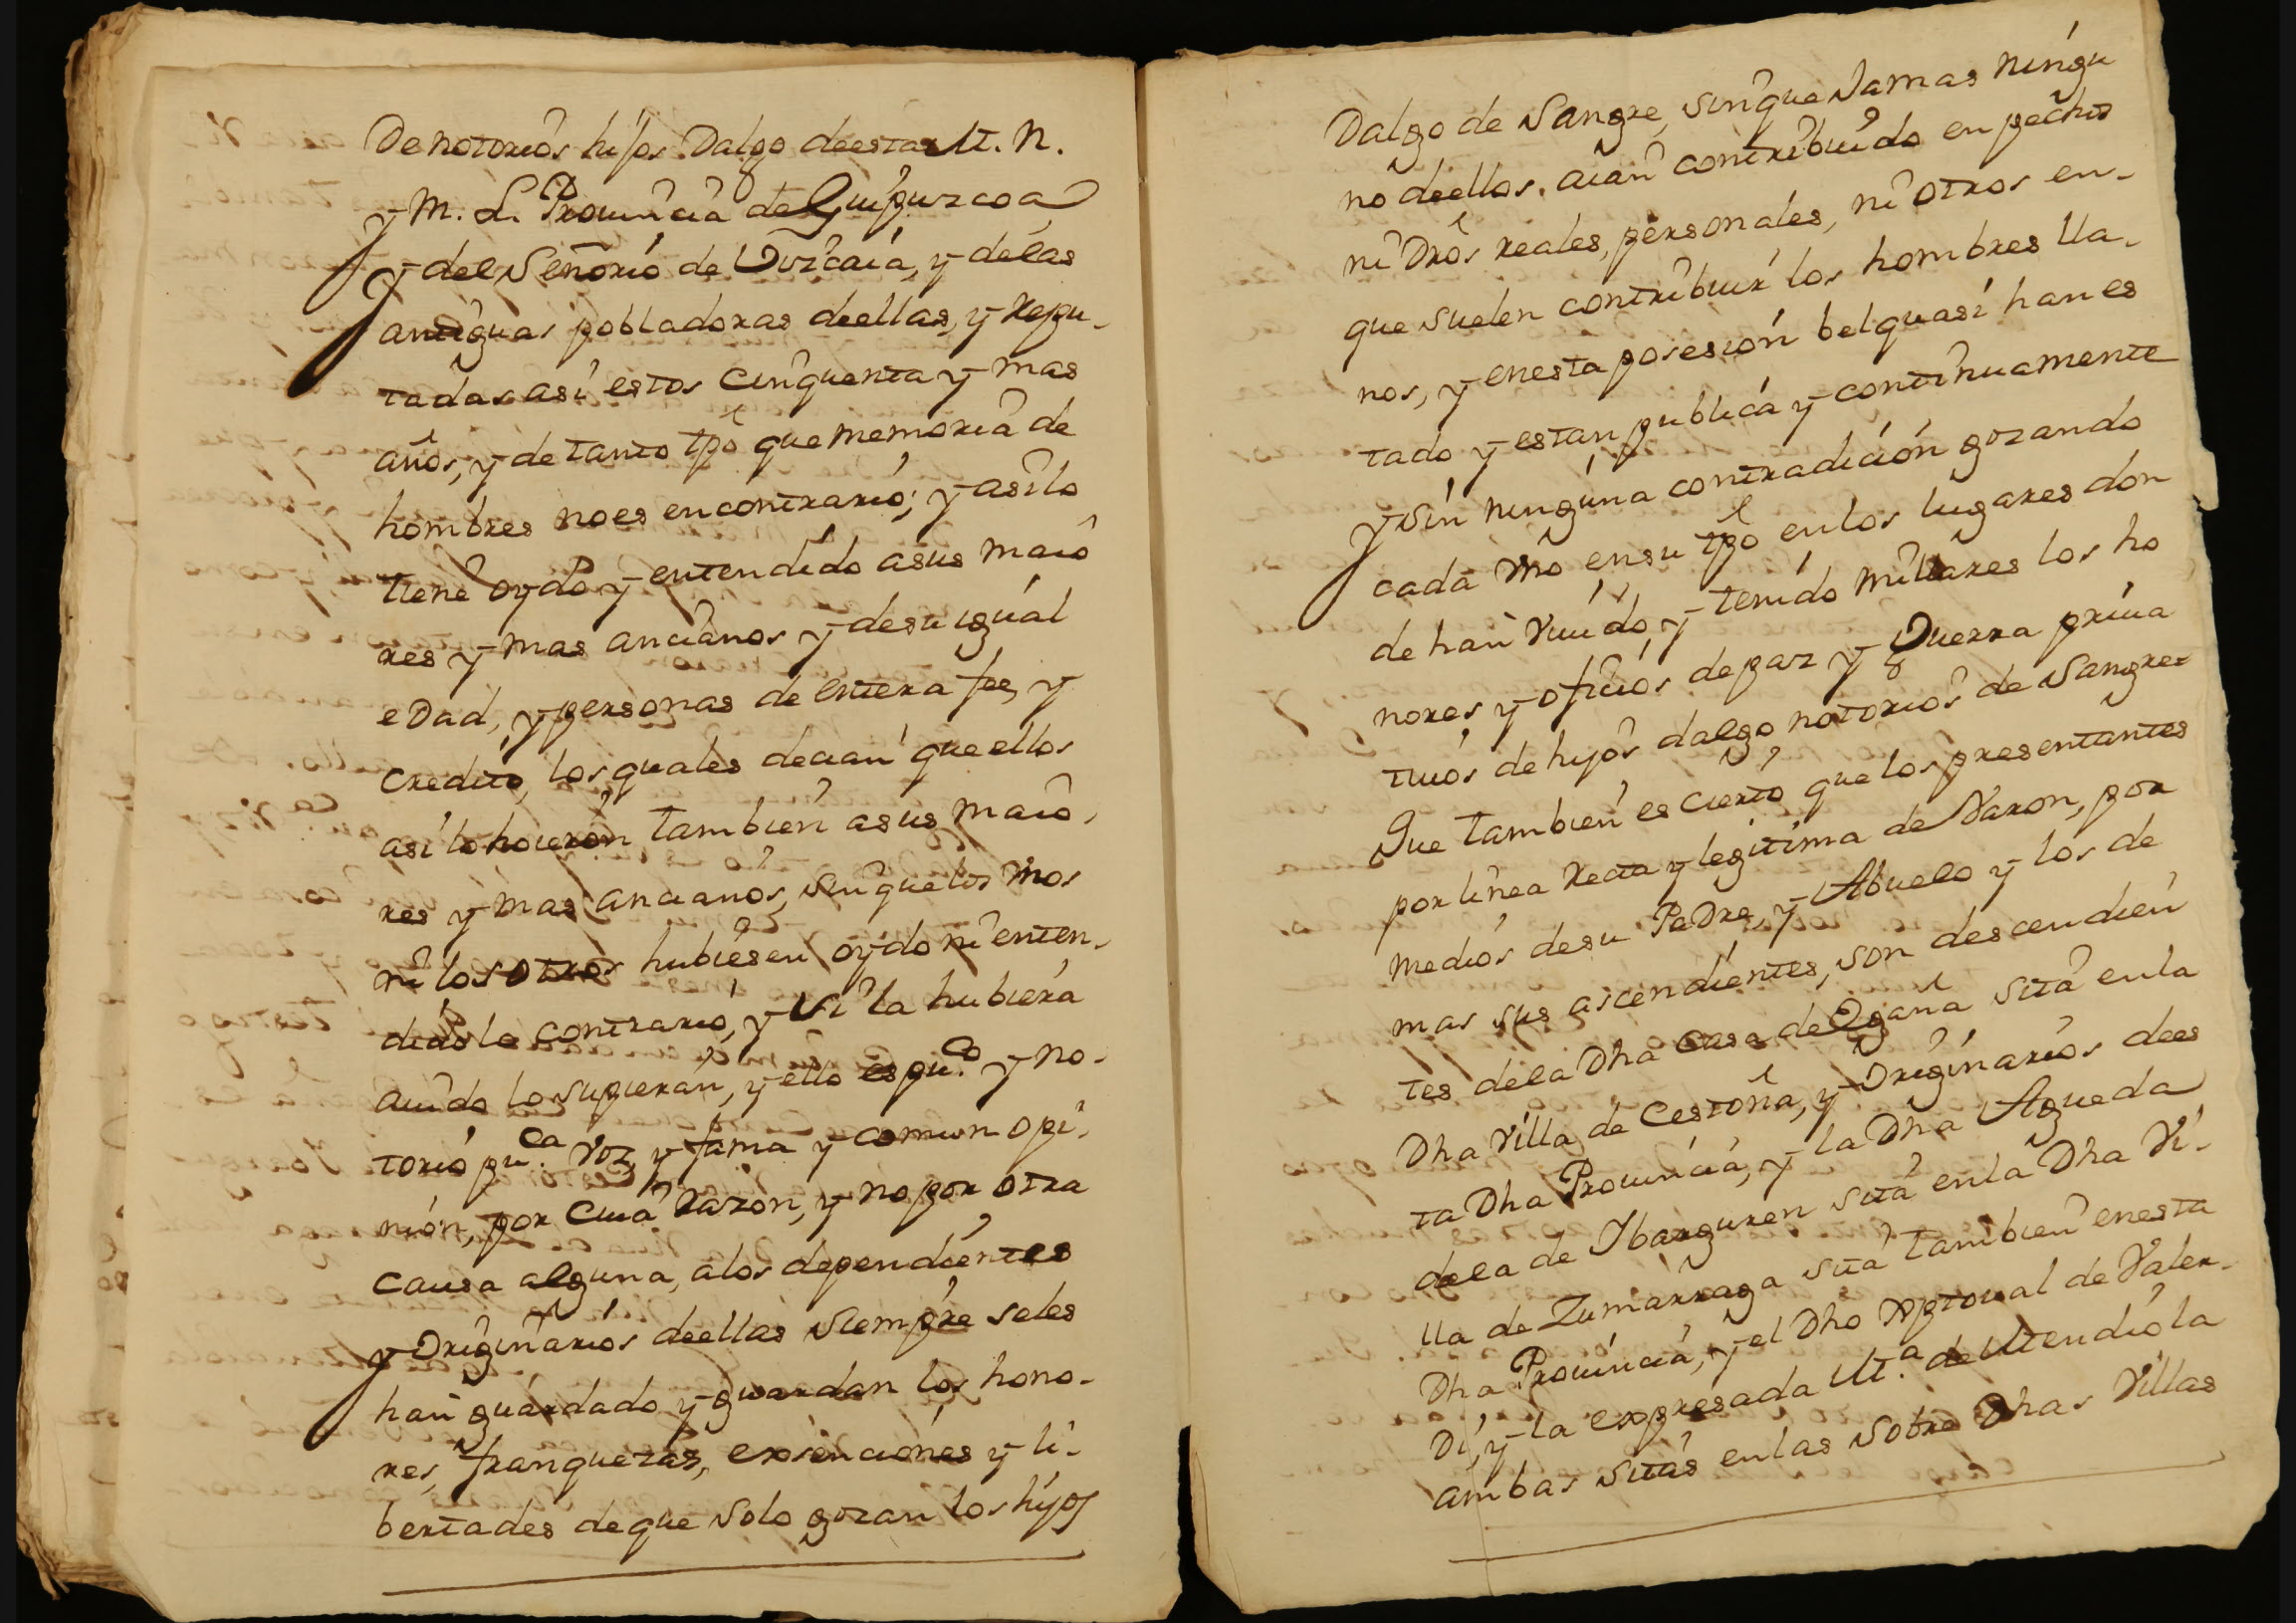 De notorios hijos Dalgo deesta M. N.
y M. L. Prouincia de Guipuzcoa
y del Señorio de Vizcaia, y delas
antiguas pobladoras deellas, y Repu-
tadas asi estos cinquenta y mas
años, y de tanto tpõ que memoria de
hombres no es en contrario; y asi lo
tiene oydo y entendido asus maio
res y mas ancianos y desu igual
eDad, y personas de entera fee, y
credito, los quales decian que ellos
asi lo hoieron tambien asus maio,
res y mas ancianos, sin que los vnos
ni los otros hubiesen oydo ni enten-
dido lo contrario, y si la hubiera
auido lo supieran, y ello es pu.co y no-
torio pu.ca voz, y fama y comun opi-
nion, por cuia Razon, y no por otra
causa alguna, alos dependientes
y originarios deellas siempre seles
han guardado y guardan los hono-
res, franquezas, exsenciones y li-
bertades de que solo gozan los hijos
Dalgo de Sangre, sin que Jamas ningu
no deellos. aian contribuido en pechos
ni Drõs reales, personales, ni otros en-
que suelen contribuir los hombres lla-
nos, y enesta posesion belquasi han es
tado y estan publica y continuamente
y sin ninguna contradicion gozando
cada vno en su tpõ en los lugares don
de han viuido, y tenido millares los ho
nores y oficios de paz y Guerra priua
tiuos de hijos dalgo notorios de Sangre=
Que tambien es cierto que los presentantes
por linea Recta y legitima de Varon, por
medios desu Padre, y Abuelo y los de
mas sus ascendientes, son descendien
tes dela Dha casa de Egaña sita en la
Dha Villa de Cestona, y originarios dees
ta Dha Prouincia, y la Dha Agueda
dela de Ybarguren sita en la Dha Vi-
lla de Zumarraga sita tambien enesta
Dha Prouincia, y el Dho Xptoual de Valer-
Di, y la expresada M.a de Mendiola
ambas sitas en las sobre Dhas Villas